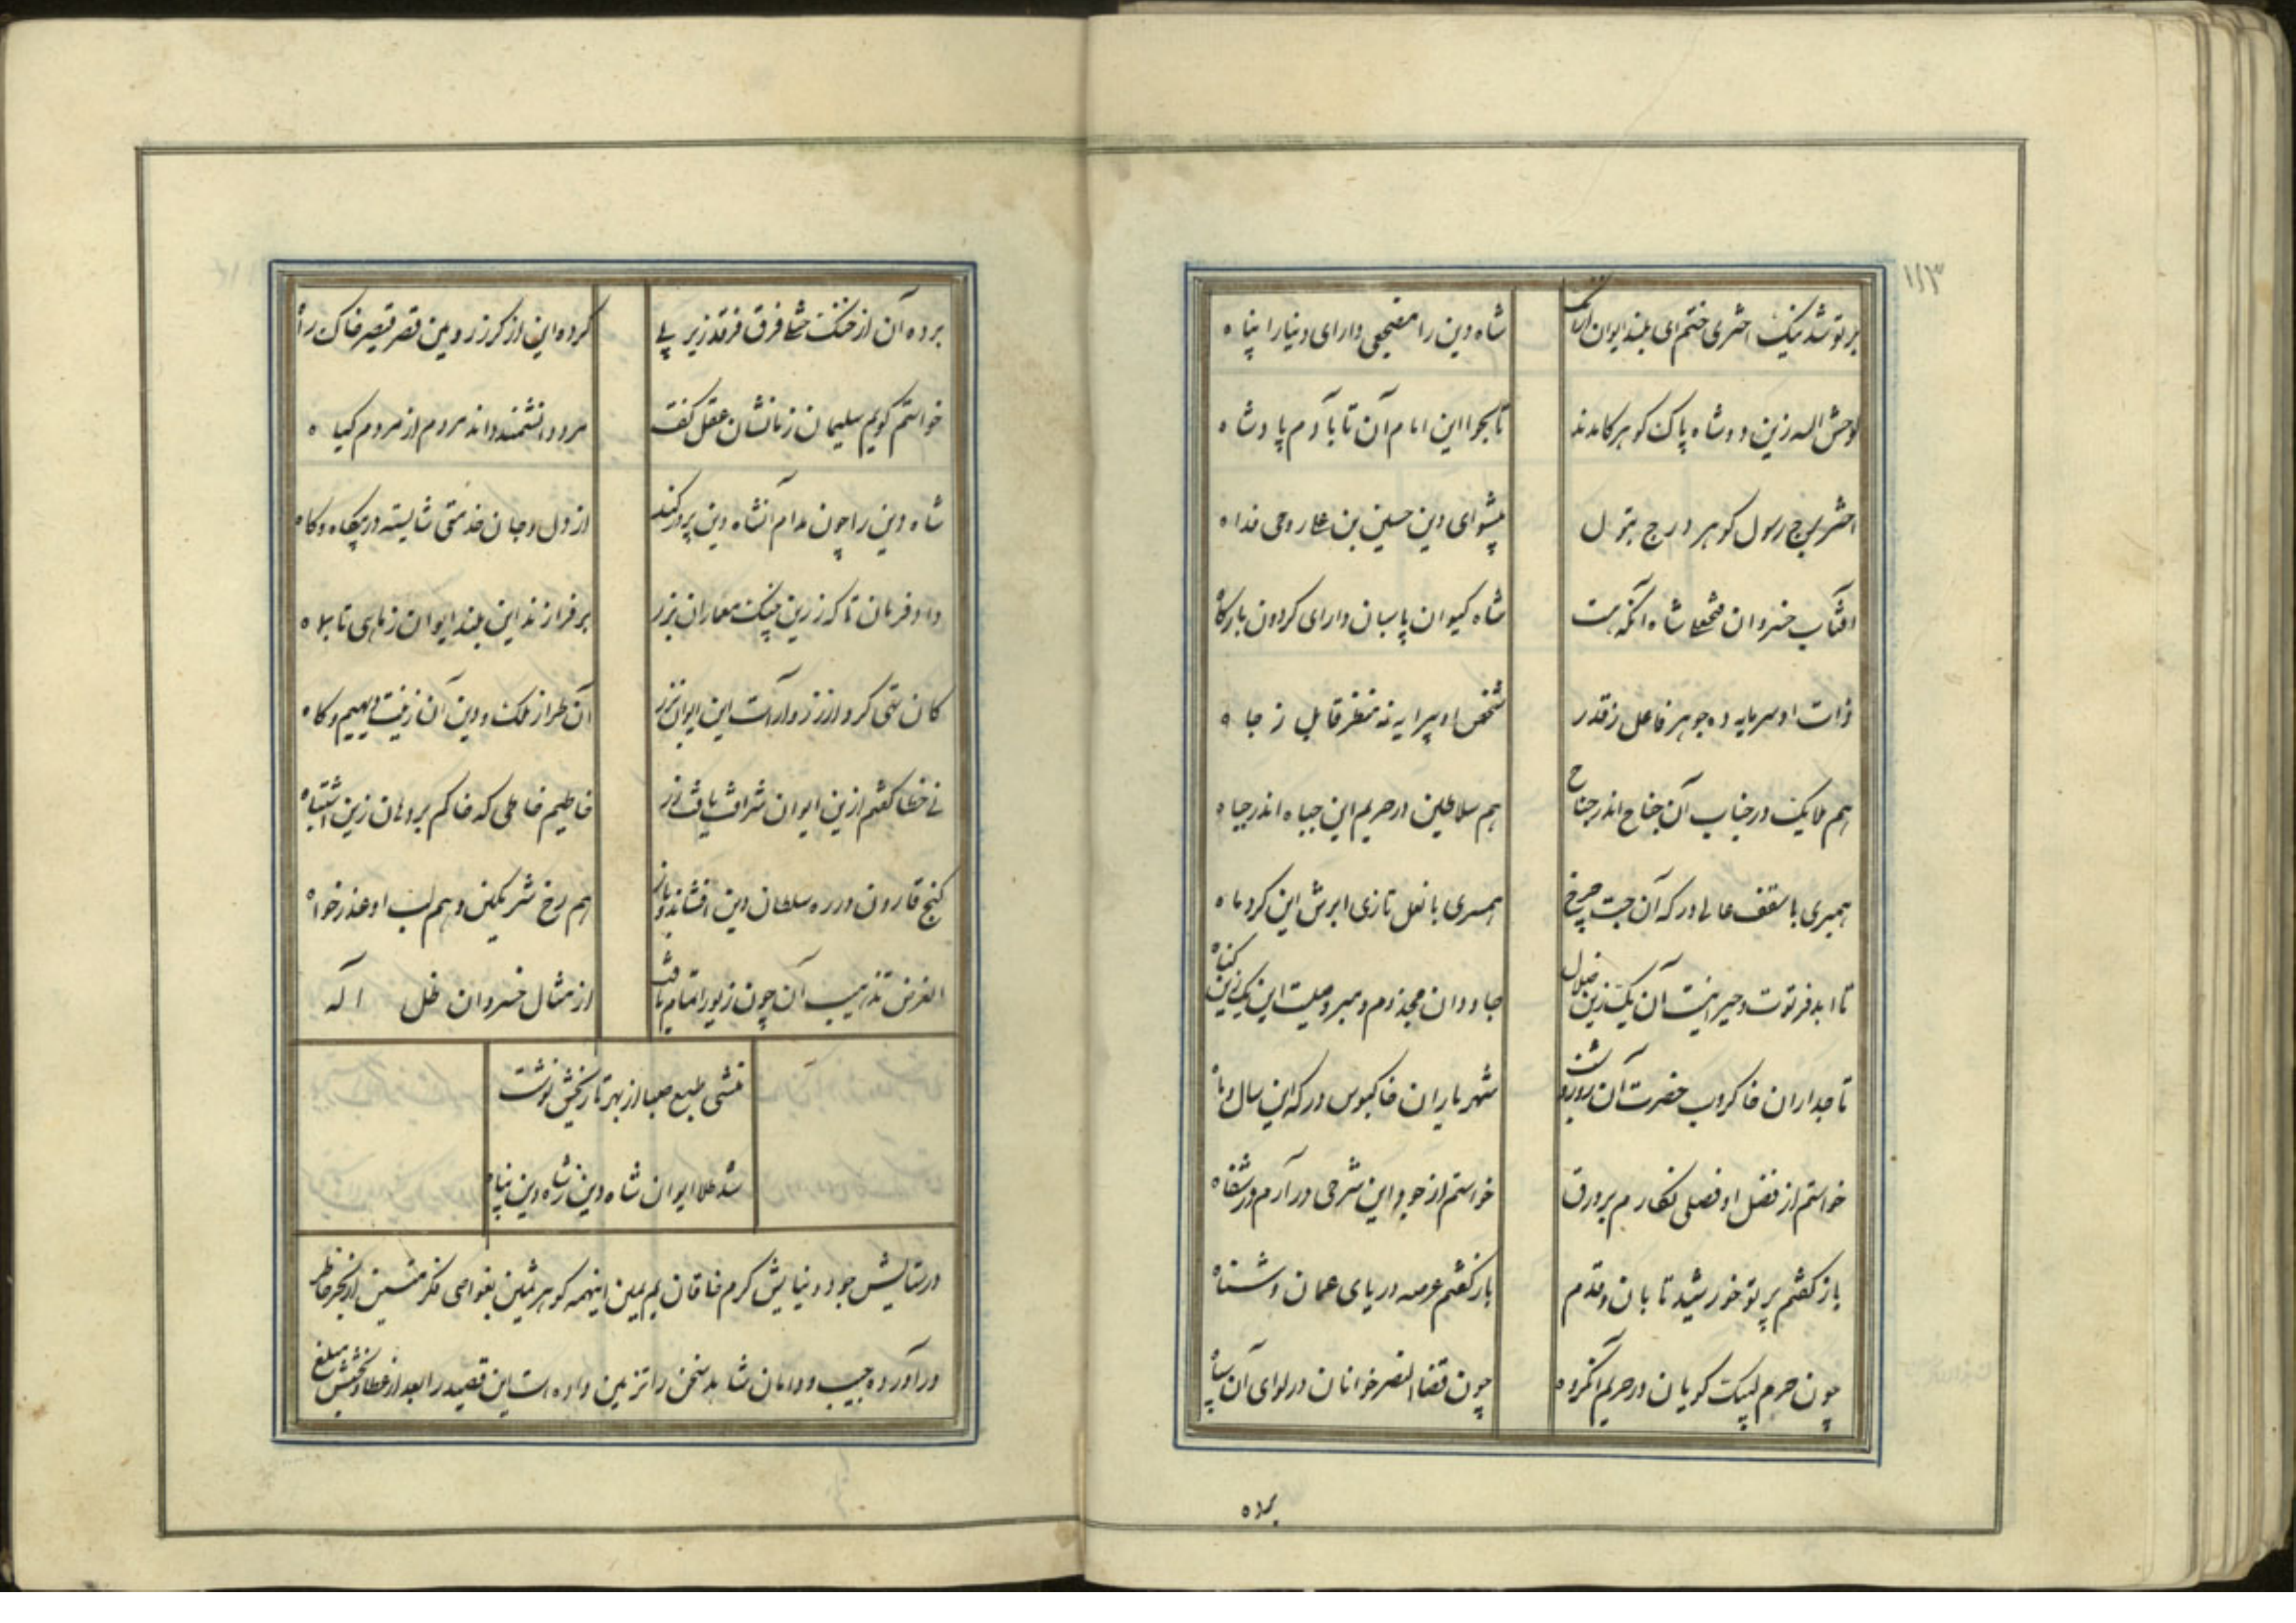 ۱۱۳
بر تو شد نیک اختری ختم ای بلند ایوان
شاه دین را مضجعی دارای دنیا را پناه
لوحش الله زین دو شاه پاک کوهر کامدند
تا بجوا این امام آن تا بآدم پادشاه
اختر برج رسول کوهر درج بتول
پیشوای دین حسین بن علی روحی فداه
آفتاب خسروان فتحعلی شاه آنکه هست
شاه کیوان پاسبان دارای کردون بارکاه
ذات او سرمایه ده جوهر فاعل ز قدر
شخص او پیرایه نه قابل ز جاه
هم ملایک در جناب آن جناح اندر جناح
هم سلاطین در حریم این جباه اندر جباه
همبری با سقف عالی درکه آن جست چرخ
همسری با نعل تازی ابرش این کرد ماه
تا ابد فرتوت و حیرانیست آن یک زین خیال
جاودان مجذوم و مبروصیست این یک زین کناه
تاجداران خاکروب حضرت آن روز و شب
شهریاران خاکبوس درکه این سال و ماه
خواستم از فضل او فصلی نکارم بر ورق
خواستم از جود این شرحی در آرم در شفاه
باز کفتم پرتو خورشید تابان و قدم
باز کفتم عرصه دریای عمان و شناه
چون حرم لبیک کویان در حریم آنکروه
چون قضا النصر خوانان در لوای آن سپاه
برده
برده آن از خنک فرق فرقد زیر پی
کرده این از کرز رویین قصر قیصر خاک راه
خواستم کویم سلیمان زمانشان عقل کفت
مرد دانشمند داند مردم از مردم کیاه
شاه دین را چون مدام آنشاه دین پرور کند
از دل و جان خدمتی شایسته در بیکاه و کاه
داد فرمان تا که زرین پنجه معماران بزر
بر فرازند این بلند ایوان ز ماهی تا بماه
کان تهی کرد از زر و آراست این ایوان بزر
آن طراز ملک و دین آن زینت دیهیم و کاه
نی خطا کفتم ازین ایوان شرافت یافت زر
خاطیم خاطی که خاکم بر دهان زین اشتباه
کنج قارون در ره سلطان دین افشاند و باز
هم رخ شرمکین و هم لب او عذر خواه
الغرض تذهیب آن چون زیور اتمام یافت
از مثال خسروان ظل اله
منشی طبع صبا از بهر تاریخش نوشت
شد طلا ایوان شاه دین ز شاه دین پناه
در ستایش جود و نیایش کرم خاقان یم یمین اینهمه کوهر ثمین بغواصی فکر متین از بحر خاطر
درآورده جیب و دامان شاهد سخن را تزیین داده است این قصیده را بعد از عطا و بخشش مبلغ